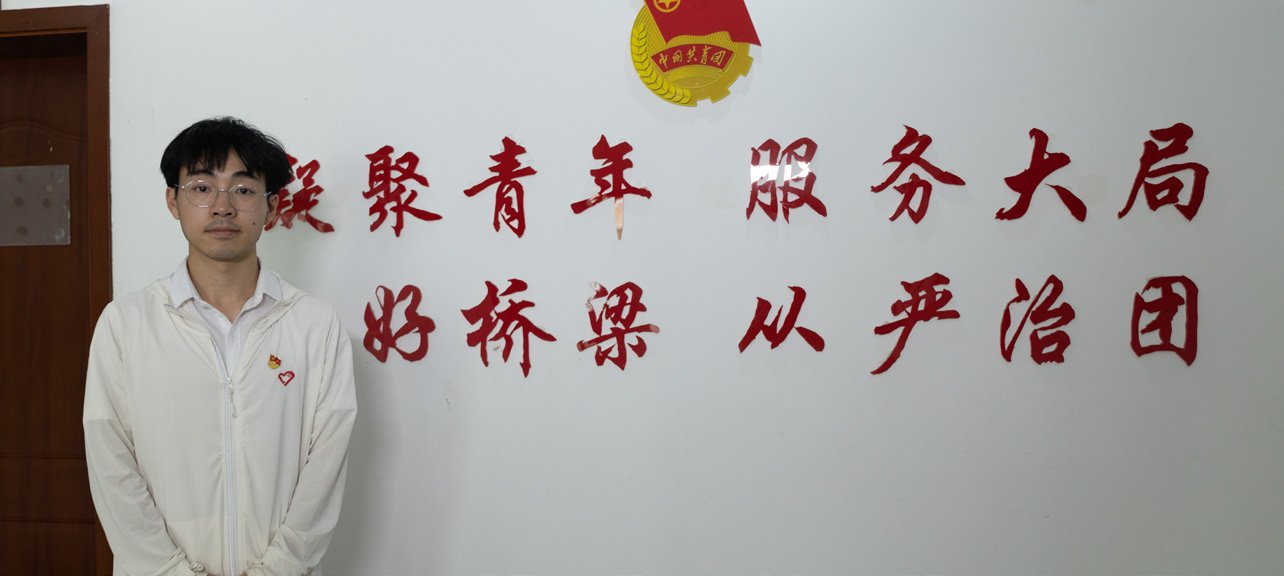 中国共青团
凝聚青年 服务大局
好桥梁 从严治团